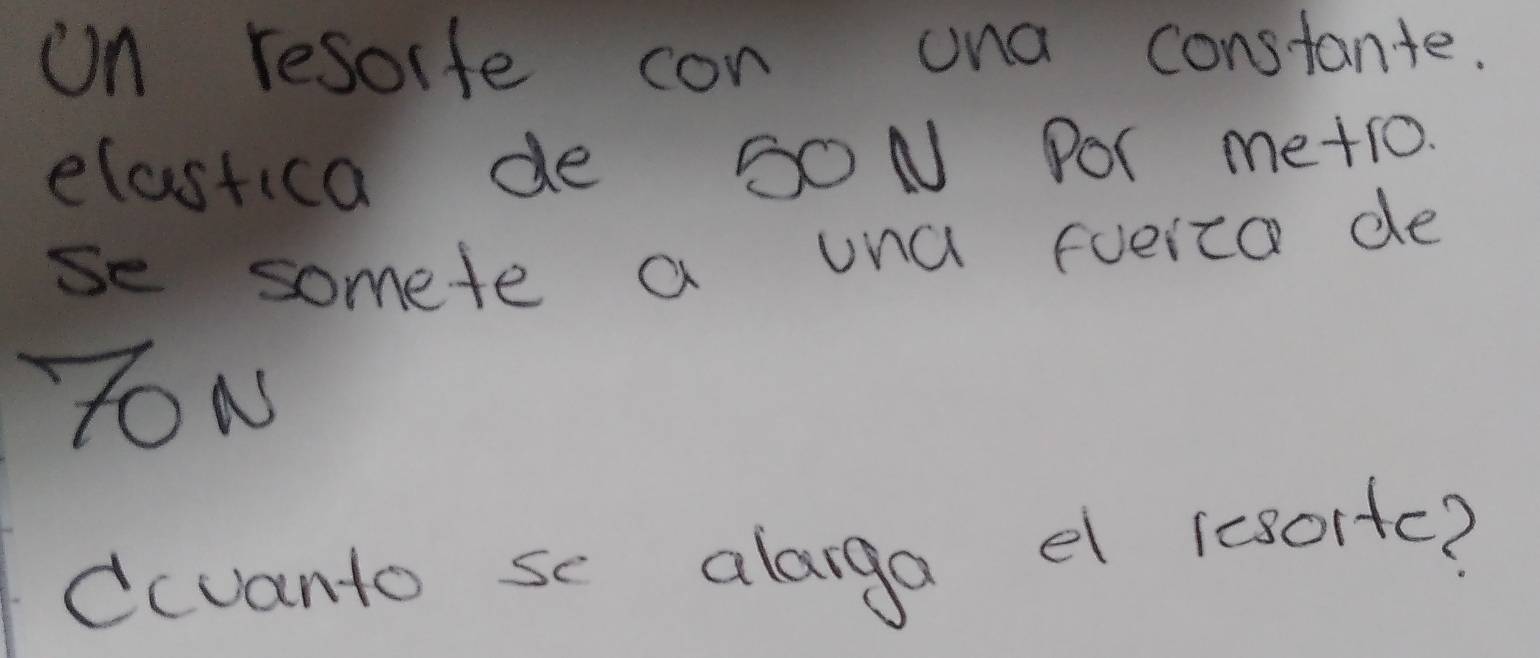 Un resorte con una constante.
elastica de 50 N Por metro.
se somete a una fuerza de
70 N
¿cuanto se alarga el resorte?